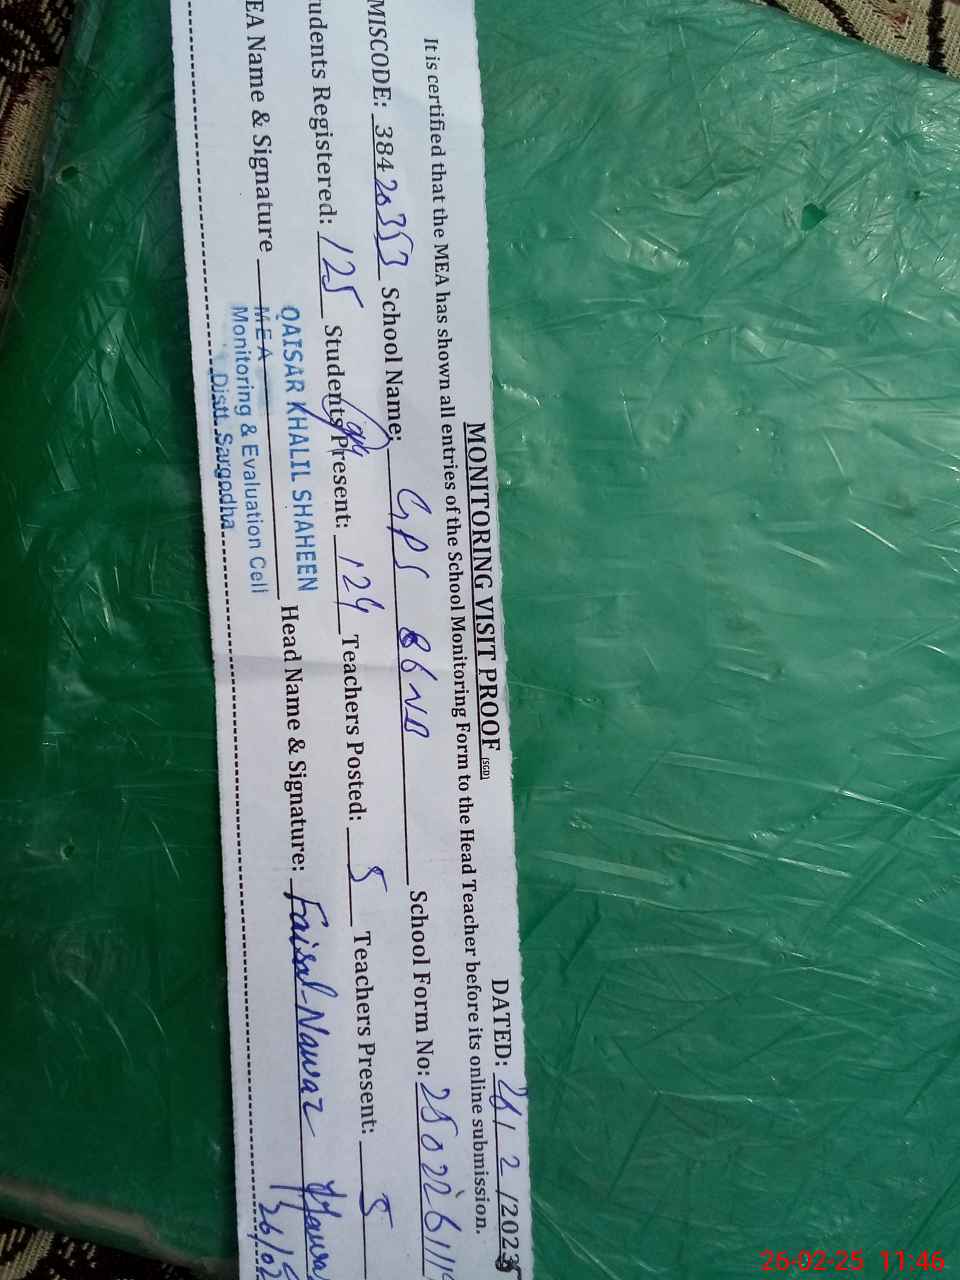 MONITORING VISIT PROOF (SGD) DATED: 26/2/2025
It is certified that the MEA has shown all entries of the School Monitoring Form to the Head Teacher before its online submission.
MISCODE: 38420353 School Name: GPS 86NB School Form No: 250226111
udents Registered: 125 Students Present: 124 Teachers Posted: 5 Teachers Present: 5
EA Name & Signature Head Name & Signature: Faisal Nawaz
QAISAR KHALIL SHAHEEN
M E A
Monitoring & Evaluation Cell
Distt. Sargodha
26/02
26-02-25 11:46